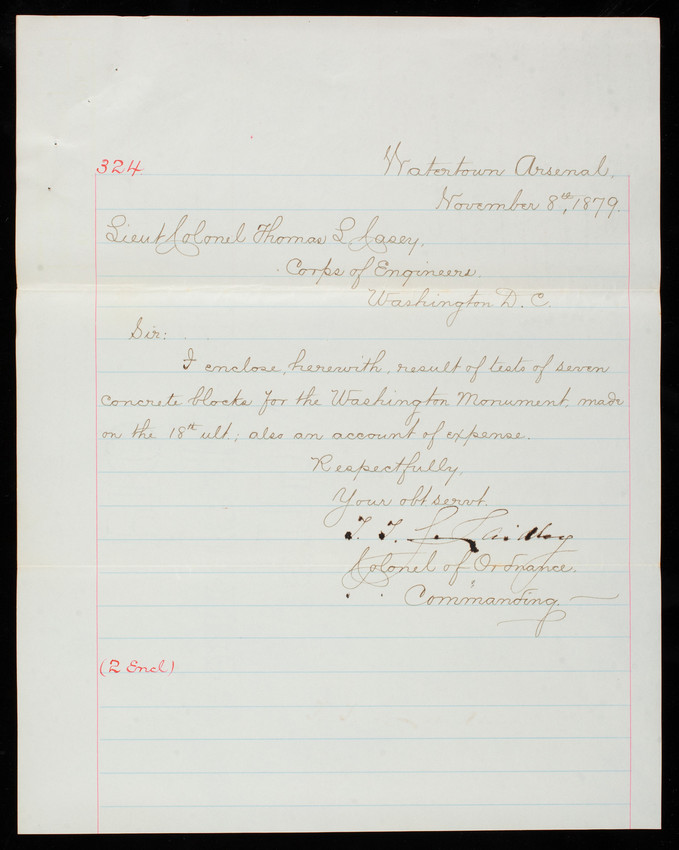 324.
Watertown Arsenal,
November 8th, 1879.
Lieut Colonel Thomas L. Casey,
Corps of Engineers.
Washington D. C.
Sir:
I enclose, herewith, result of tests of seven
concrete blocks for the Washington Monument, made
on the 18th ult.; also an account of expense.
Respectfully,
Your obt servt.
T. T. S. Laidley
Colonel of Ordnance.
Commanding.
(2 Encl)